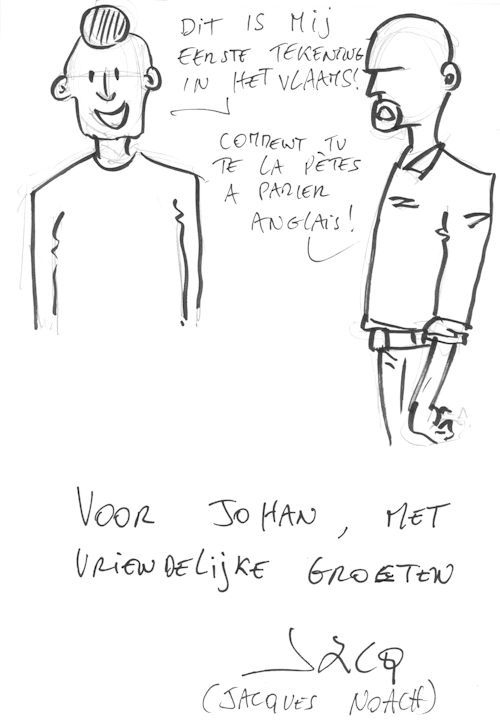 DIT IS MIJ
EERSTE TEKENING
IN HET VLAAMS!
COMMENT TU
TE LA PÈTES
A PARLER
ANGLAIS!
VOOR JOHAN, MET
VRIENDELIJKE GROETEN
JACQ
(JACQUES NOACH)